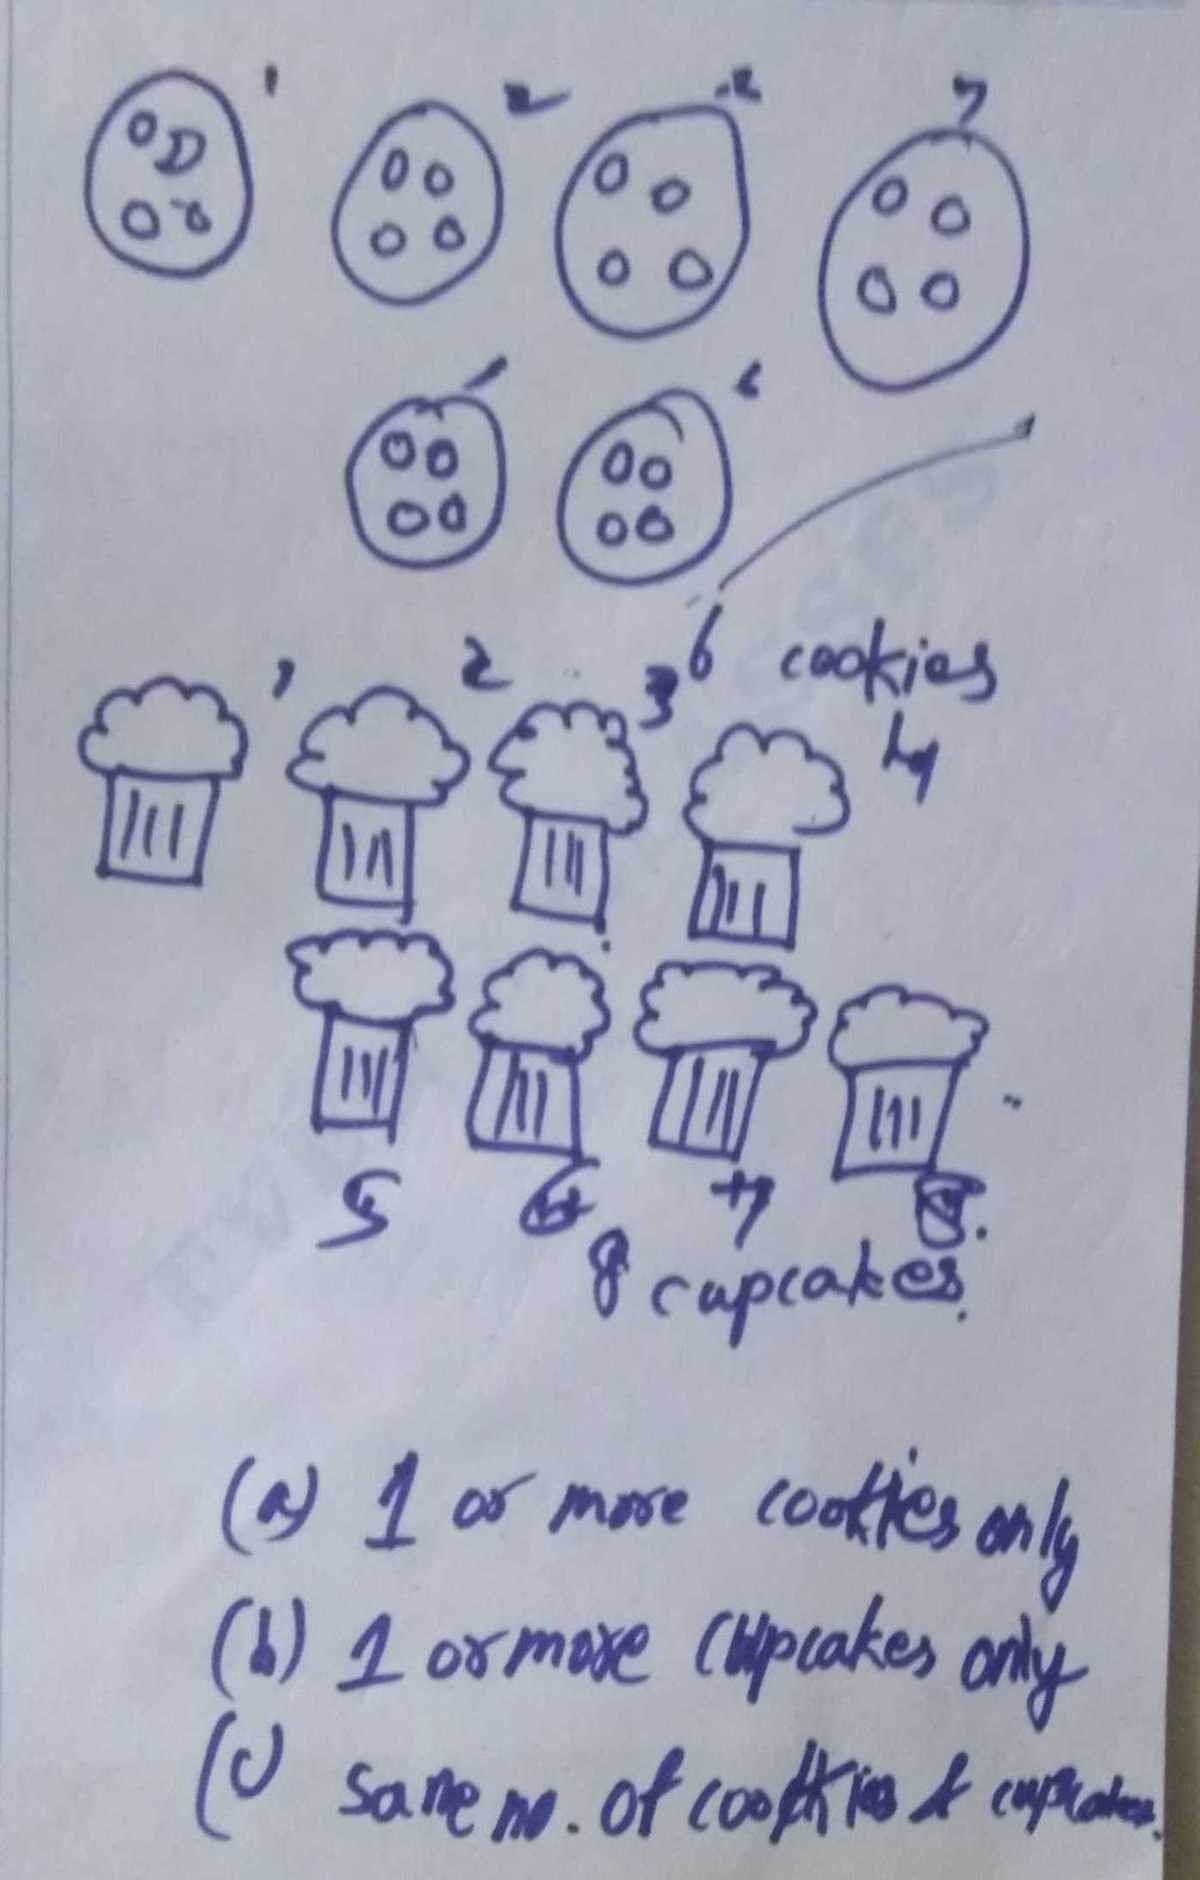 1 2
6 cookies
1 2 3 4
5 6 7 8.
8 cupcakes.
(a) 1 or more cookies only
(b) 1 or more cupcakes only
(c) same no. of cookies & cupcakes.